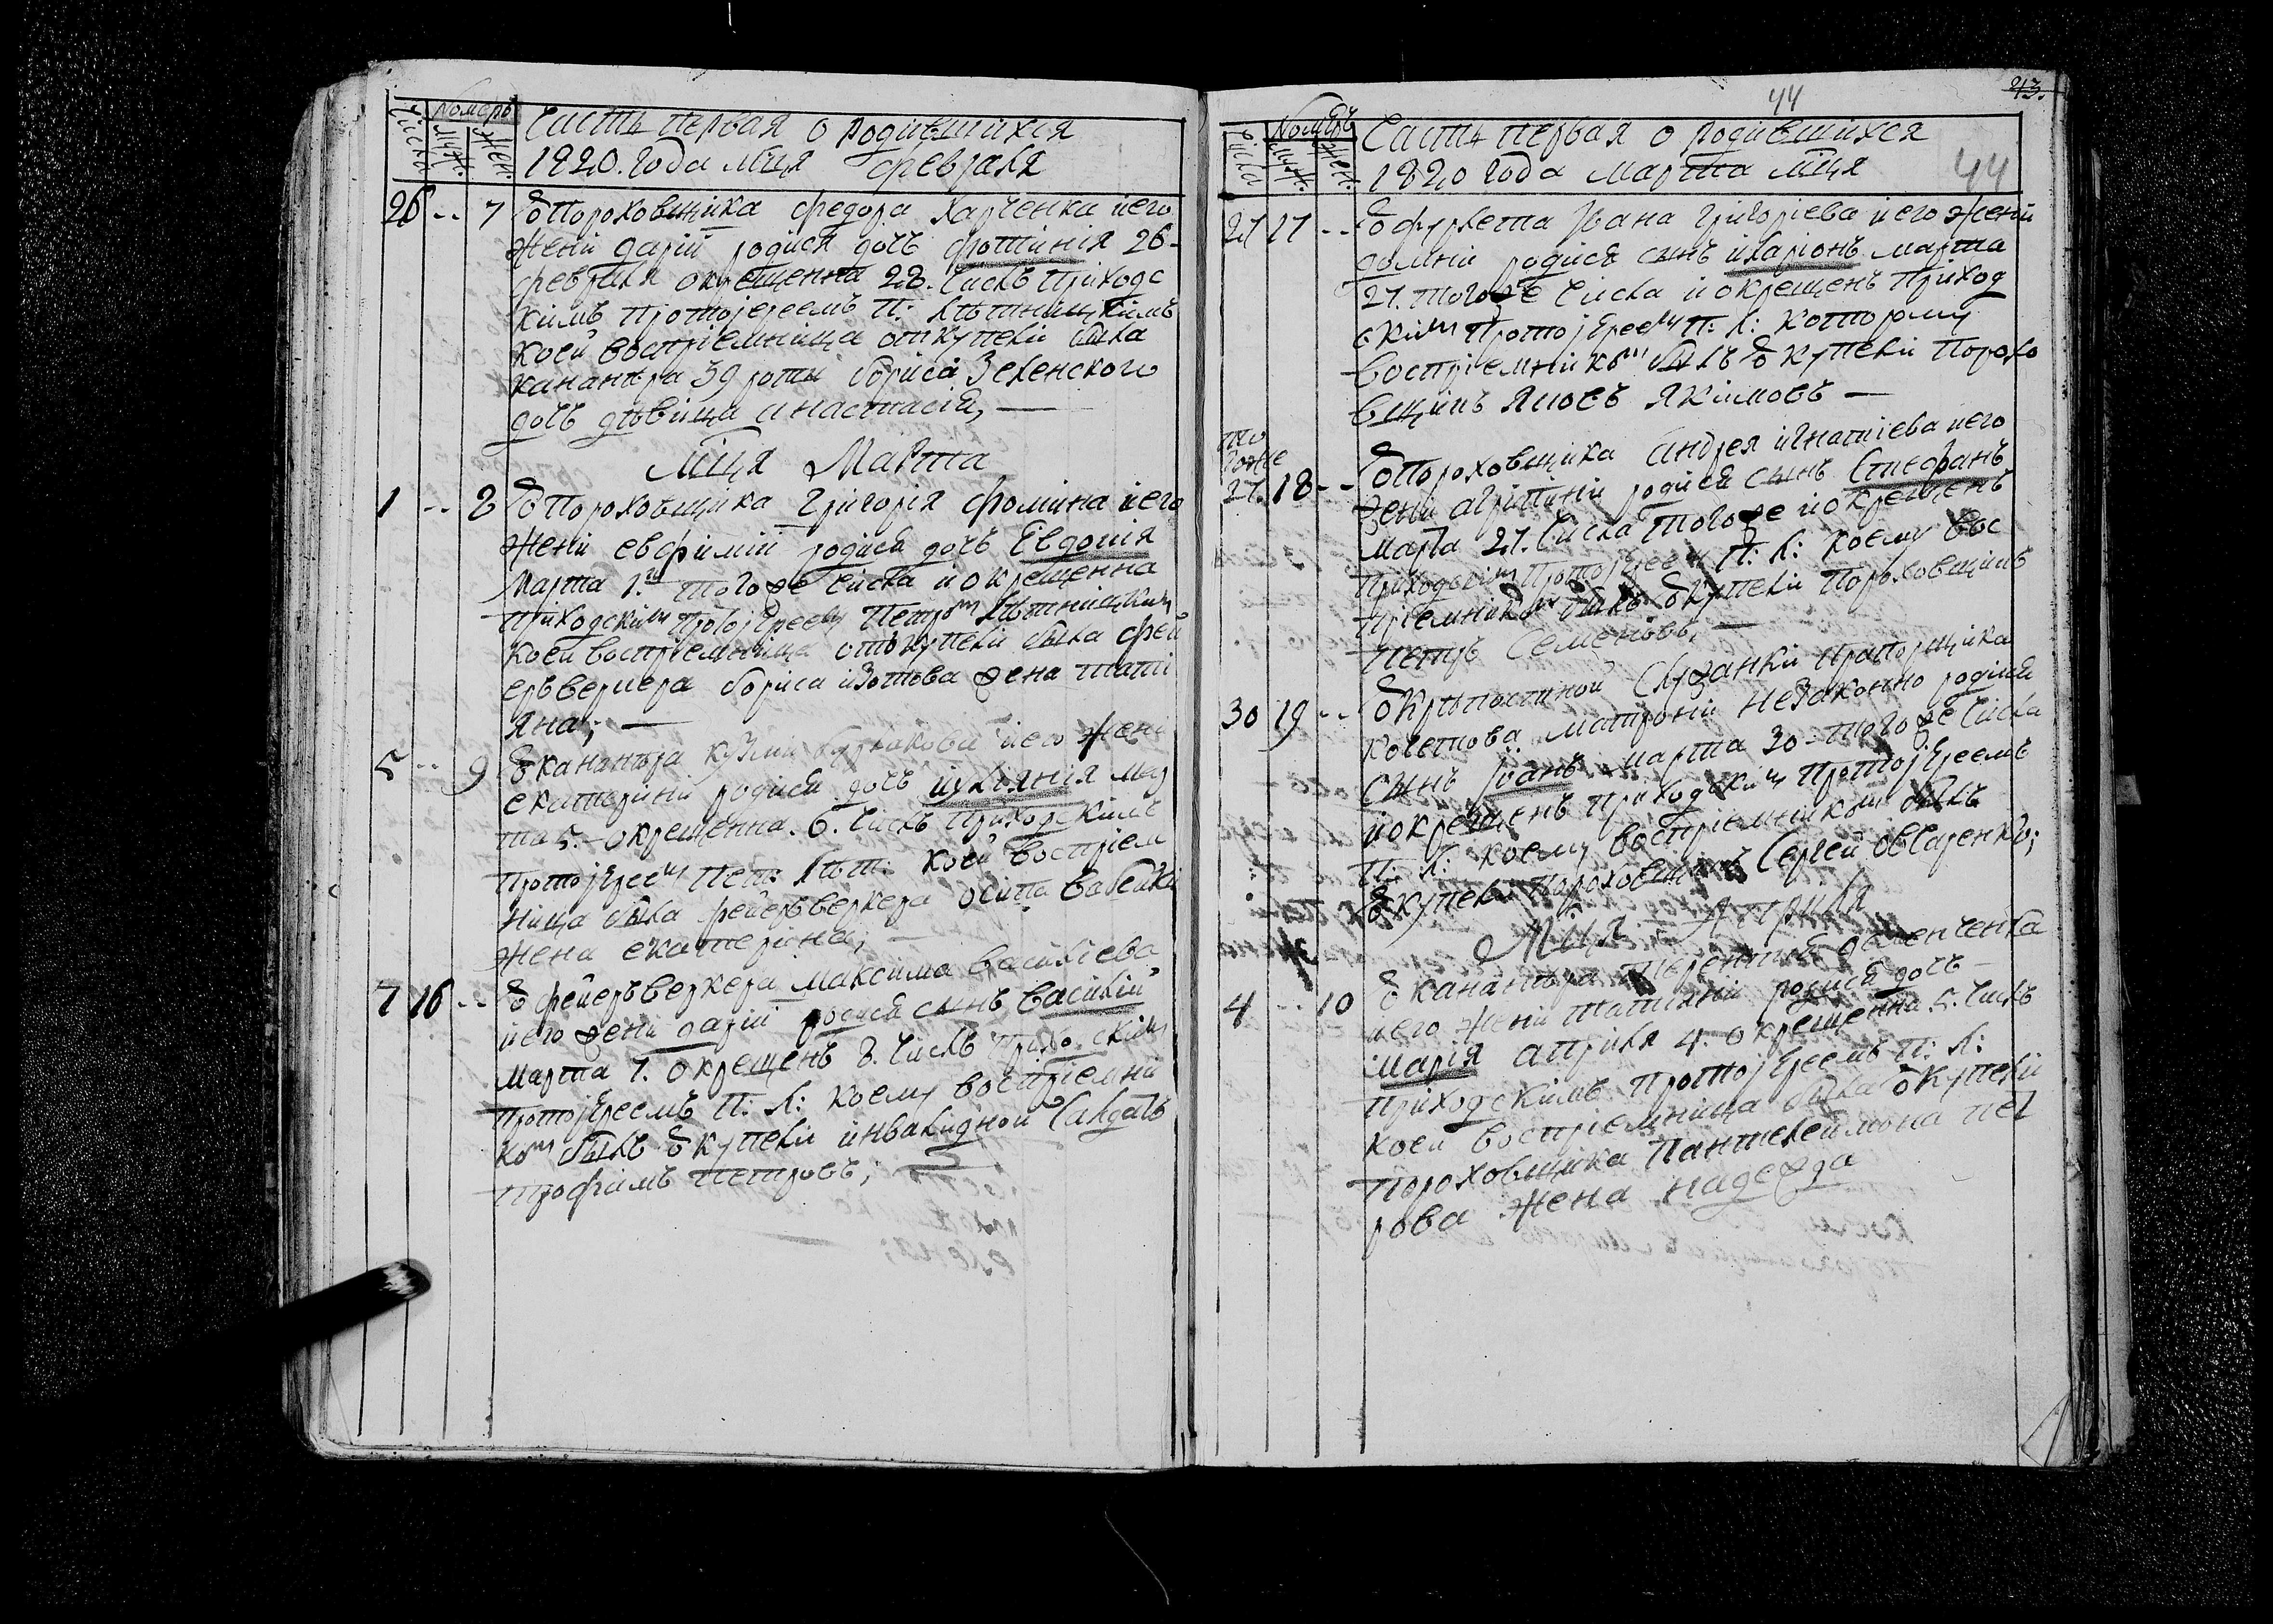 Числа
Номеръ
Муж.
Жен.
Часть первая о родившихся
1820. года мца февраля
26 -- 7 Упороховщика Федора Харченка иего
жени дарїи родися дочъ фотинїя 26-
февраля окрещенна 28. числъ приходс
кимъ протоїереемъ П: Лѣтницкимъ
коей воспрїемница откупели была
кананѣра 39 роты бориса Зеленского
дочъ дѣвица анастасїя, —
Мця Марта
1 -- 8 Упороховщика Григорїя фомина иего
жени евфимїи родися дочъ Евдокїя
Марта 1го. тогоже числа и окрещенна
приходскимъ протоїереемъ Петромъ Лѣтницкимъ
коей воспрїемница откупели была фей
ерьверкера бориса изотова жена тати
яна; —
5 -- 9 Уканантра кузми его жени
екатерини родися дочъ иулїянїя мар
та 5. - окрещенна. 6. числъ приходскимъ
протоїереемъ Пет: Лѣт: коей воспрїем
ница была фейерьверкера осипа
жена екатерина; —
7 16 -- Уфейеръверкера Максима василїева
иего жени дарїи родися сынъ василїй
Марта 7. окрещенъ 8. числъ приходскимъ
протоїереемъ П: Л: коему воспрїемни
комъ былъ укупели инвалидной салдатъ
трофимъ петровъ; —
44
43.
Числа
Номеръ
Муж.
Жен.
Часть первая о родившихся
1820 года марта мця
44
27 17 -- Уфурлета Ивана григорїева иего жени
домнїи родися сынъ иларїонъ марта
27. тогоже числа и окрещенъ приход
скимъ протоїереемъ П: Л: которому
воспрїемникомъ былъ укупели порохо
вщикъ яковъ якимовъ —
того же
27. 18 -- Упороховщика Андрея игнатїева иего
жени агрипини родися сынъ Стефанъ
марта 27. числа тогоже и окрещенъ
приходскимъ протоїереемъ П: Л: коему вос
прїемникомъ былъ укупели пороховщикъ
петръ Семеновъ, —
30 19 -- Укрѣпостной служанки прапорщика
кочетова матрони незаконно родися
сынъ Иоанъ марта 30 - тогоже числа
и окрещенъ приходскимъ протоїереемъ
П: Л: коему воспрїемникомъ былъ
укупели пороховщикъ Сергей овчаренко;
Мця Априля
4 -- 10 Уканантра терентїя
иего жени татїяни родися дочъ —
Марїя априля 4. окрещенна. 5. числъ
приходскимъ протоїереемъ П: Л:
коей воспрїемница была укупели
пороховщика Пантелеймона пет
рова жена надежда